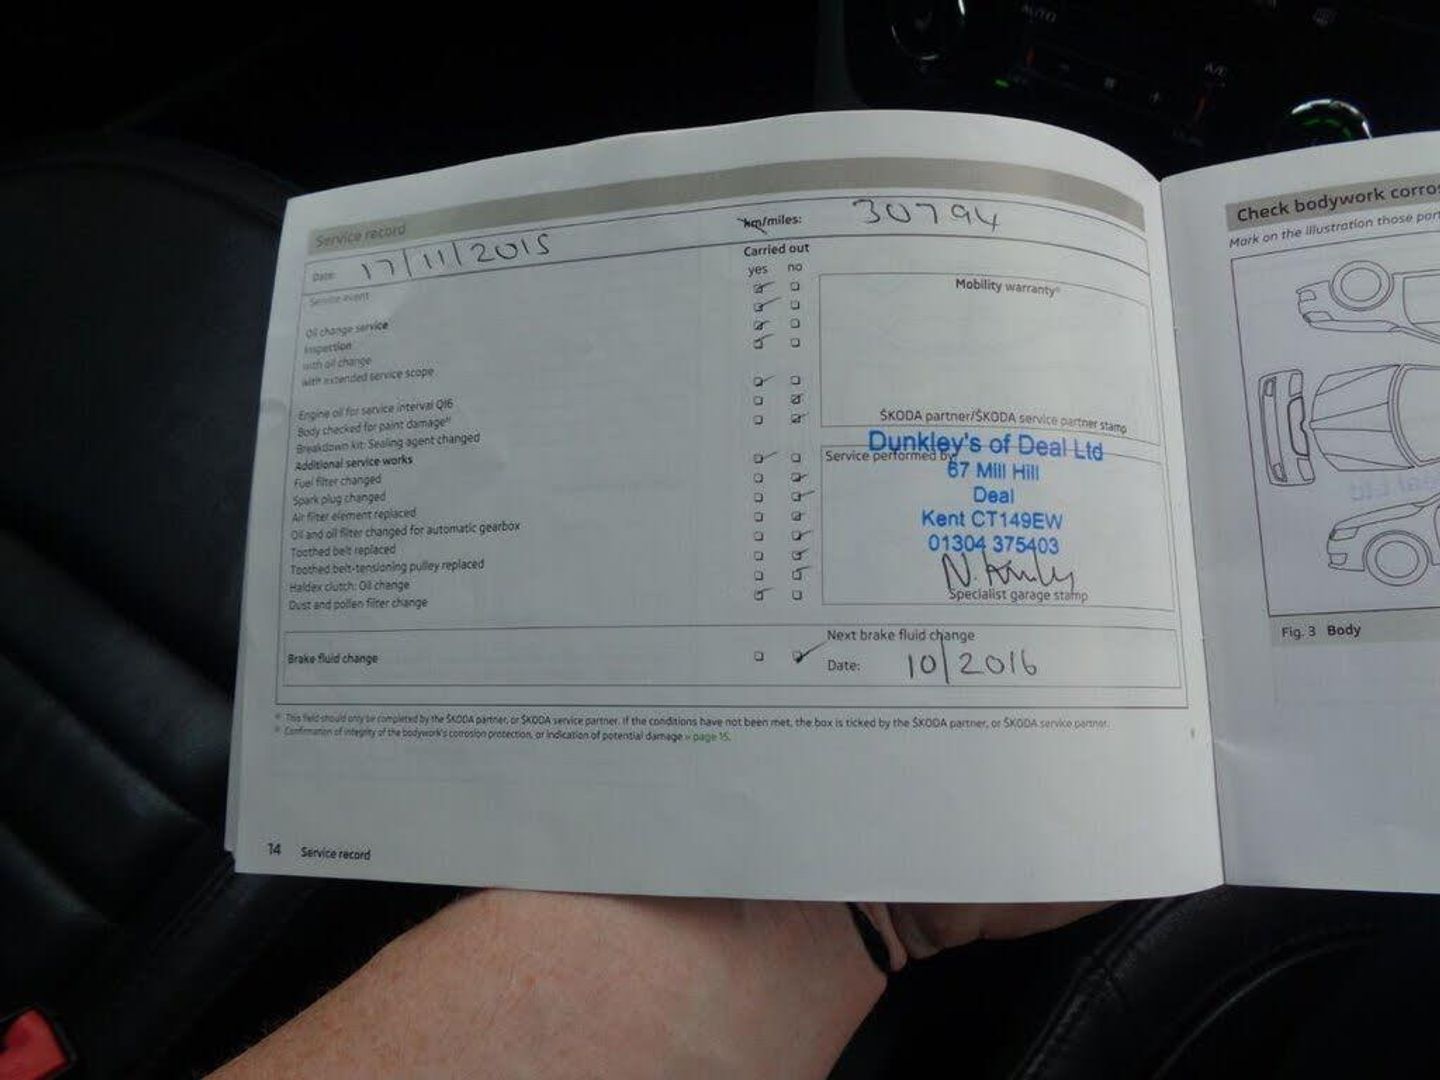 Service record
Date: 17/11/2015
km/miles: 30794
Service event
Carried out
yes no
Oil change service
Inspection
with oil change
with extended service scope
Engine oil for service interval QI6
Body checked for paint damage
Breakdown kit: Sealing agent changed
Additional service works
Fuel filter changed
Spark plug changed
Air filter element replaced
Oil and oil filter changed for automatic gearbox
Toothed belt replaced
Toothed belt-tensioning pulley replaced
Haldex clutch: Oil change
Dust and pollen filter change
Mobility warranty
ŠKODA partner/ŠKODA service partner stamp
Service performed by:
Dunkley's of Deal Ltd
67 Mill Hill
Deal
Kent CT149EW
01304 375403
Specialist garage stamp
Brake fluid change
Next brake fluid change
Date: 10/2016
This field should only be completed by the ŠKODA partner, or ŠKODA service partner. If the conditions have not been met, the box is ticked by the ŠKODA partner, or ŠKODA service partner.
Confirmation of integrity of the bodywork's corrosion protection, or indication of potential damage » page 15.
14 Service record
Check bodywork corros
Mark on the illustration those part
Fig. 3 Body
AUTO
A/C